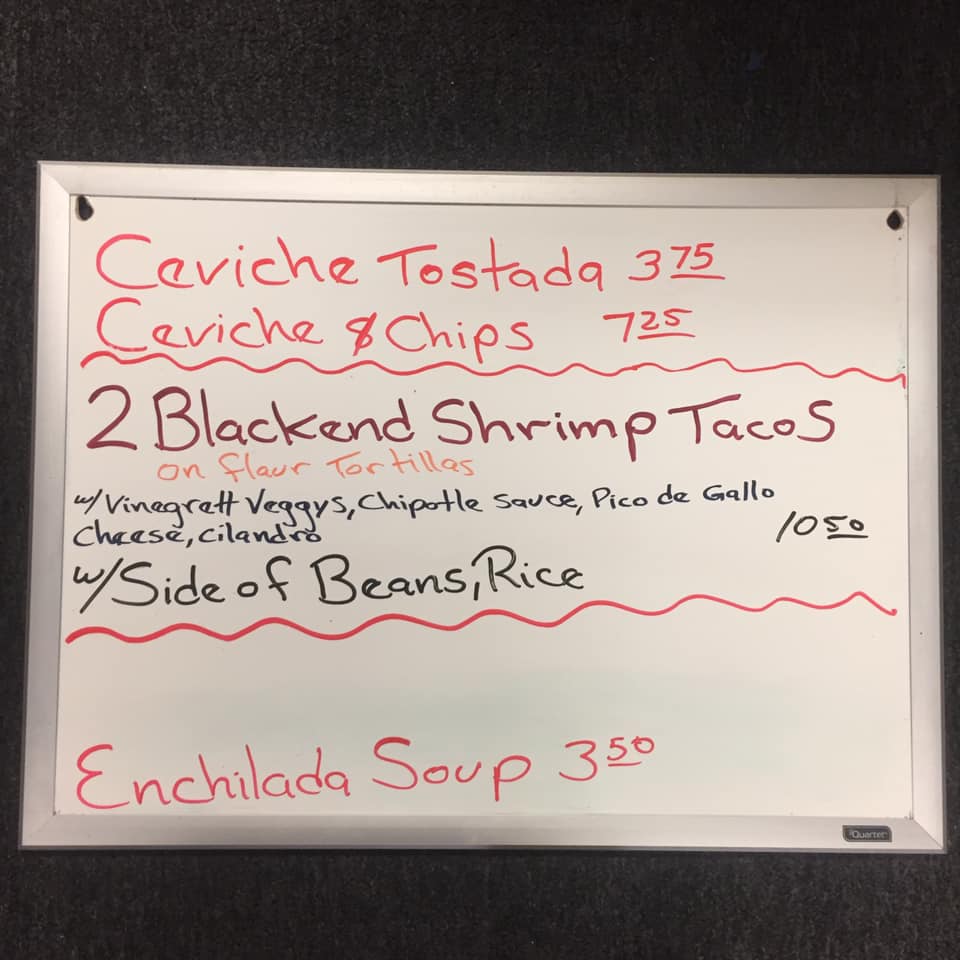 Ceviche Tostada 3 75
Ceviche & Chips 7 25
2 Blackend Shrimp Tacos
on flaur Tortillas
w/Vinegrett Veggys, Chipotle sauce, Pico de Gallo
Cheese, cilandro
10 50
w/Side of Beans, Rice
Enchilada Soup 3 50
Quartet